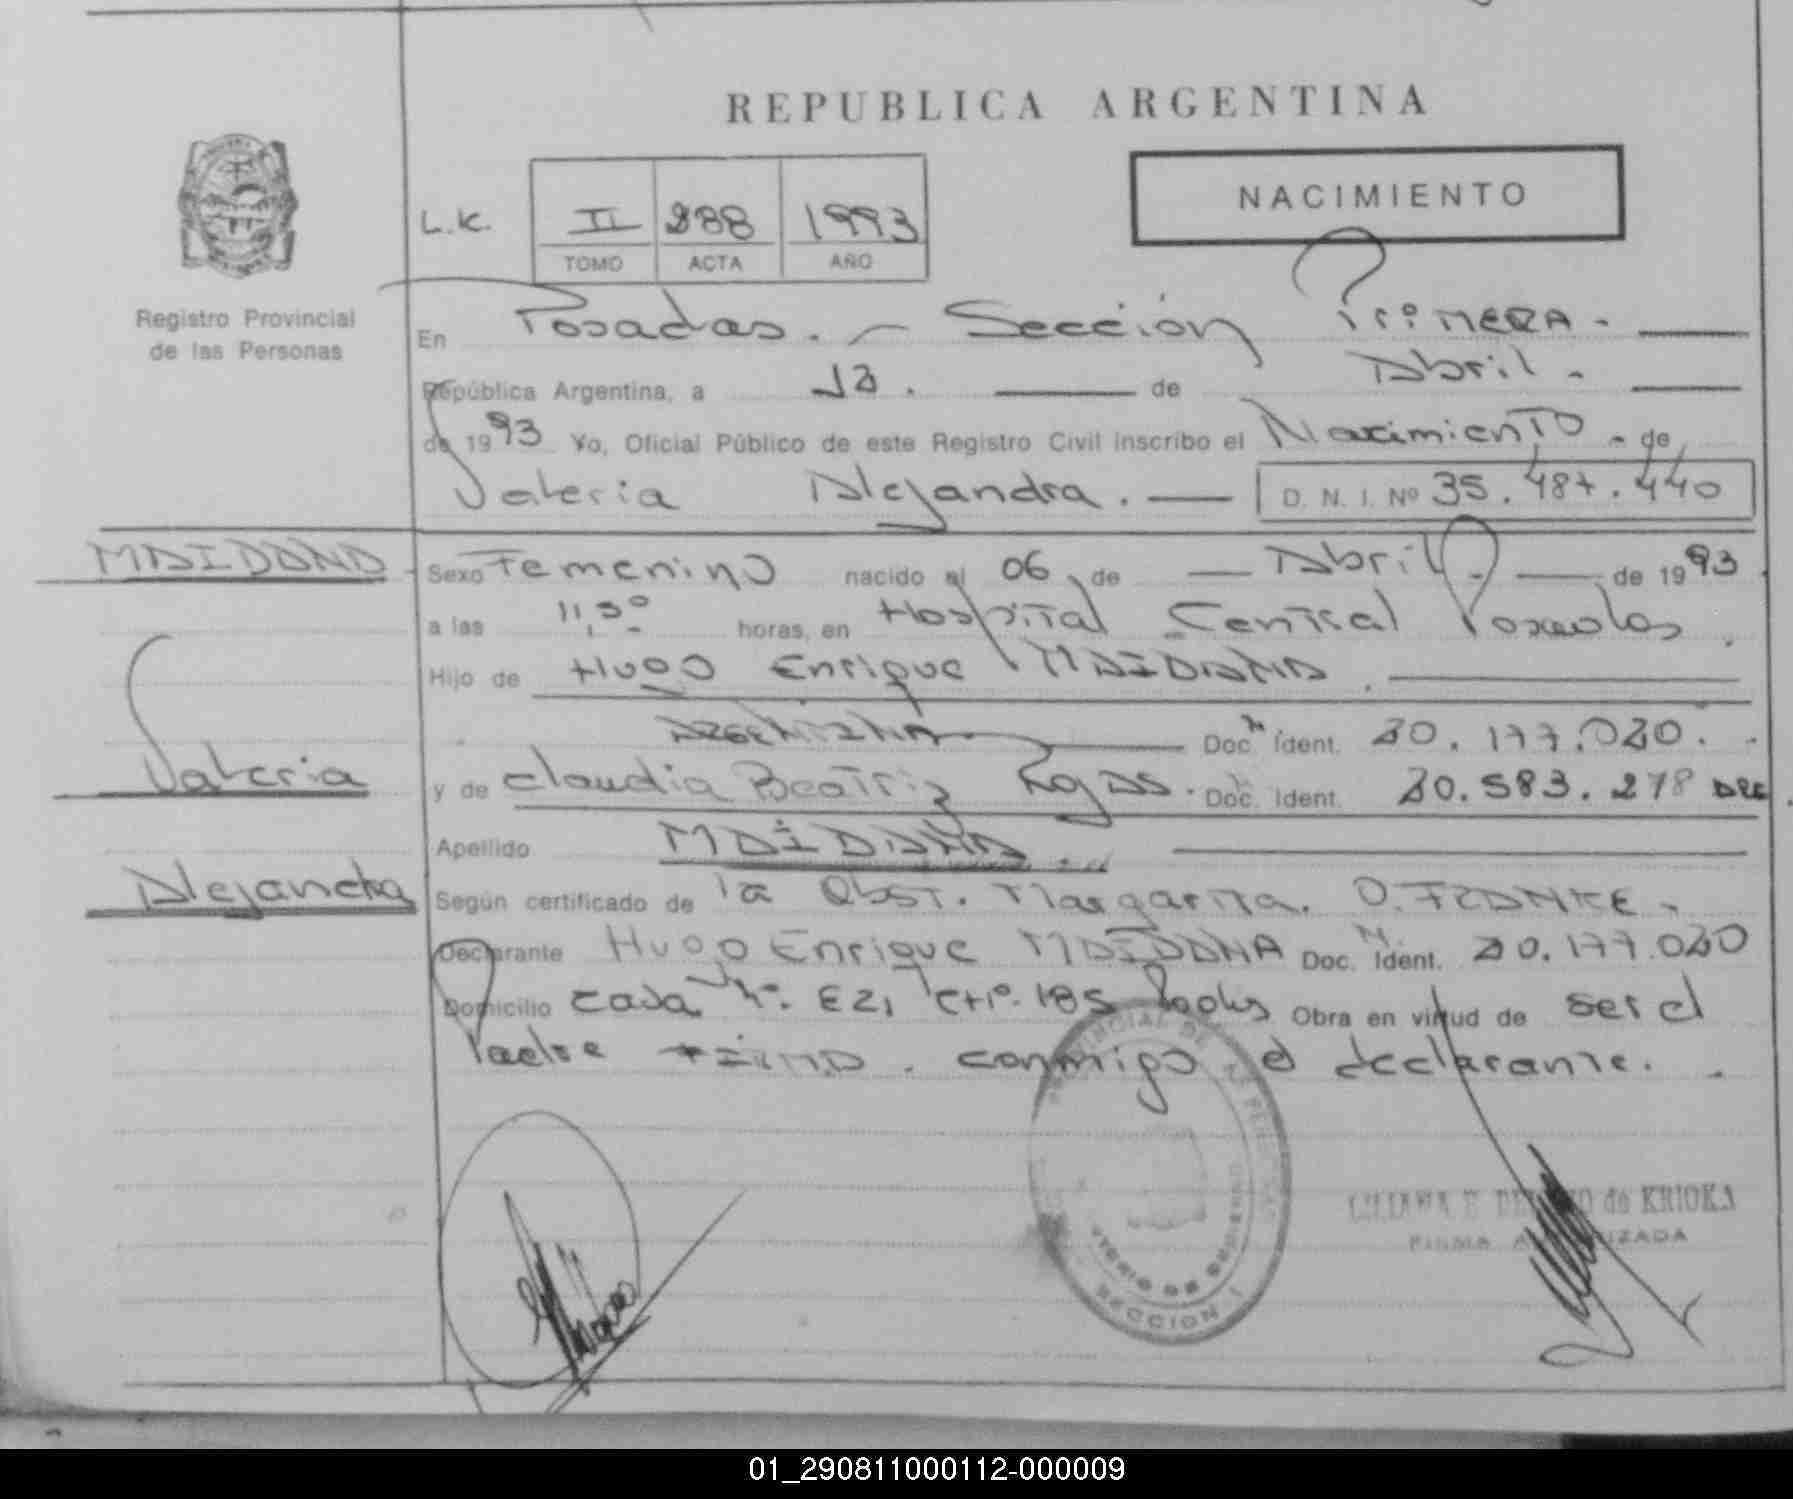 REPUBLICA ARGENTINA
NACIMIENTO
L.K. II 288 1993
TOMO ACTA AÑO
Registro Provincial
de las Personas
En Posadas. - Sección Primera -
República Argentina, a 12. de Abril -
de 1993 Yo, Oficial Público de este Registro Civil inscribo el Nacimiento - de
Valeria Alejandra. D. N. I. Nº 35.487.440
MAIDANA
Sexo Femenino nacido el 06 de Abril. de 1993
a las 11,30 horas, en Hospital Central Posadas.
Hijo de Hugo Enrique MAIDANA.
ARGENTINA Doc. Ident. 20.177.020.
Valeria
y de Claudia Beatriz Rojas. Doc. Ident. 20.583.278 ARG
Apellido MAIDANA
Alejandra
Según certificado de la Obst. Margarita. O. FRANKE -
Declarante Hugo Enrique MAIDANA Doc. Ident. 20.177.020
Domicilio casa Nº. E21 185 Obra en virtud de ser el
Padre FIRMA. conmigo el declarante.
LILIANA E de KRIOKA
FIRMA AUTORIZADA
SECCION 1
01_290811000112-000009